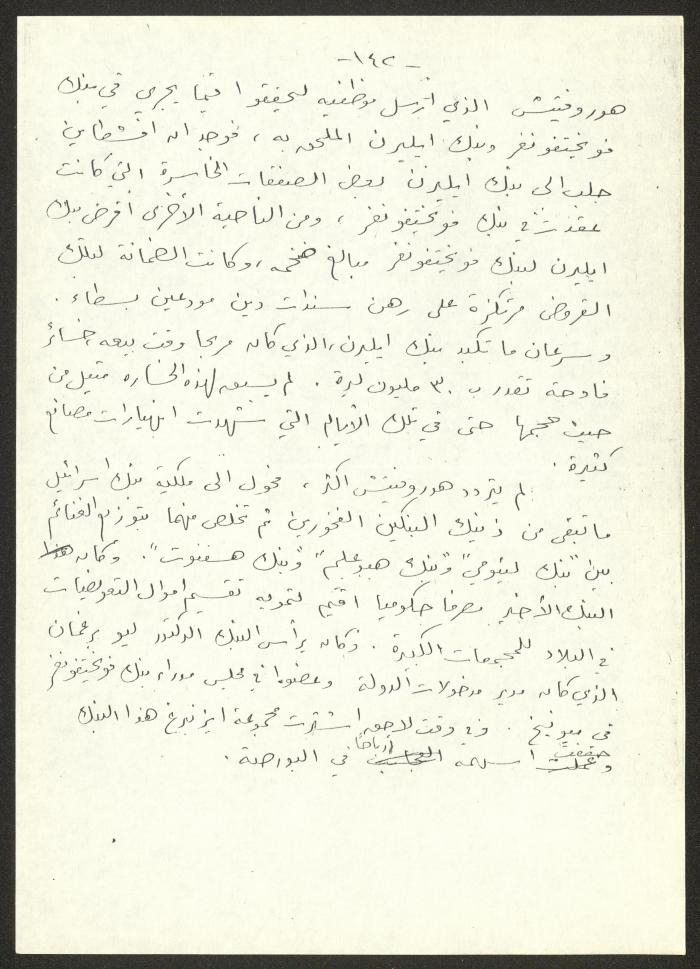 -١٤٢-
هوروفيتش الذي أرسل موظفيه ليحققوا فيما يجري في بنك
فويختفونغر وبنك ايليرن الملحق به ، فوجد ان
جلب الى بنك ايليرن بعض الصفقات الخاسرة التي كانت
عقدت في بنك فويختفونغر ، ومن الناحية الأخرى أقرض بنك
ايليرن لبنك فويختفونغر مبالغ ضخمه ، وكانت الضمانة لتلك
القروض مرتكزة على رهن سندات دين مودعين بسطاء .
وسرعان ما تكبد بنك ايليرن ، الذي كان مربحا وقت بيعه ، خسائر
فادحة تقدر ب ٣٠ مليون ليرة . لم يسبق لهذه الخساره مثيل من
حيث حجمها حتى في تلك الأيام التي شهدت انهيارات مصانع
كثيرة .
لم يتردد هوروفيتش اكثر ، فحول الى ملكية بنك اسرائيل
ما تبقى من ذينك البنكين الفخورين ثم تخلص منهما بتوزيع الغنائم
بين "بنك ليئومي" و"بنك هبوعليم" و"بنك هسفنوت" . وكان هذا
البنك الأخير مصرفا حكوميا اقيم لتمويه تقسيم اموال التعويضات
في البلاد للمجمعات الكبيرة . وكان يرأس البنك الدكتور ليو برغمان
الذي كان مدير مدخولات الدولة وعضوا في مجلس مدراء بنك فويختفونغر
في ميونيخ . وفي وقت لاحق اشترت مجموعة ايزنبرغ هذا البنك
وحققت اسهمه أرباحا في البورصة .